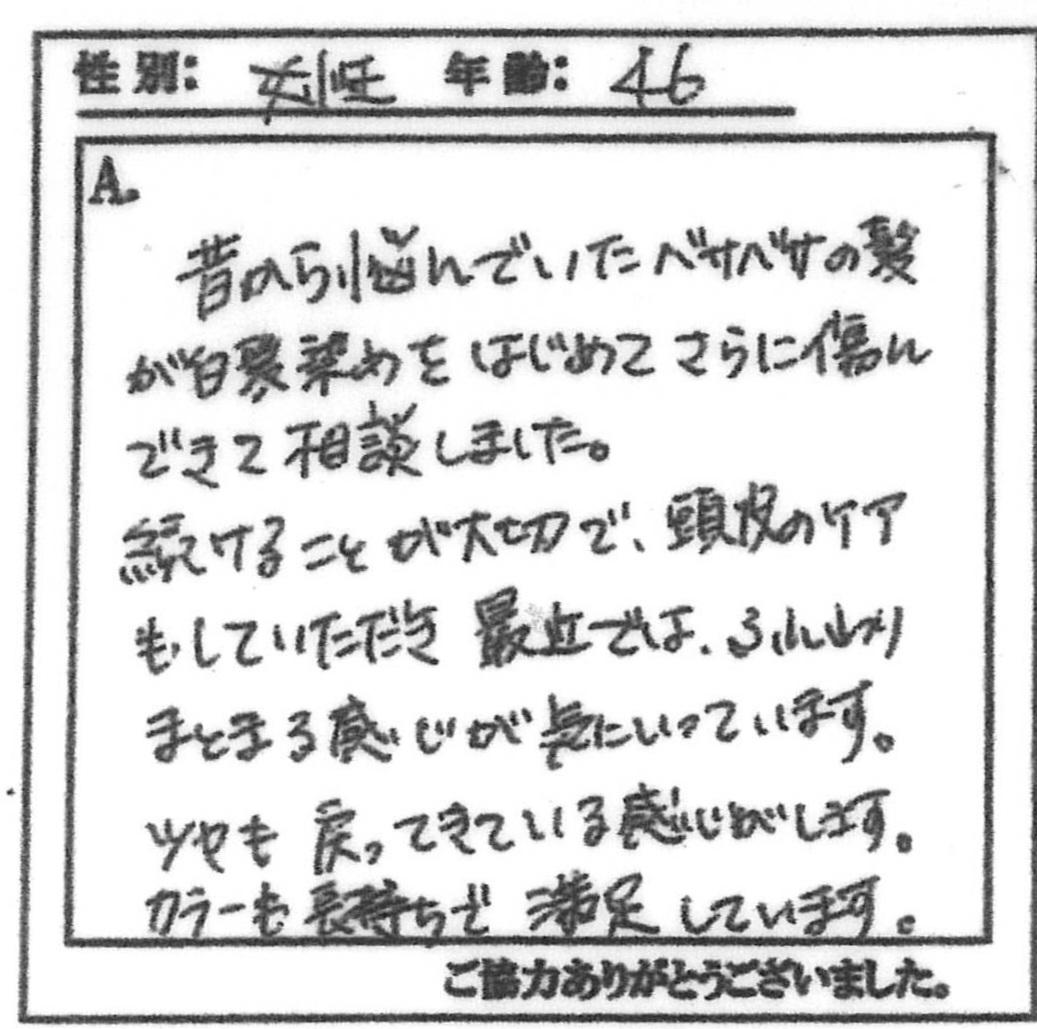 性別: 女性 年齢: 46
A.
昔から悩んでいたベサベサの髪
が白髪染めをはじめてさらに傷ん
できて相談しました。
続けることが大切で、頭皮のケア
もしていただき 最近では、ふんわり
まとまる感じが気にいっています。
ツヤも戻ってきている感じがします。
カラーも長持ちで 満足しています。
ご協力ありがとうございました。